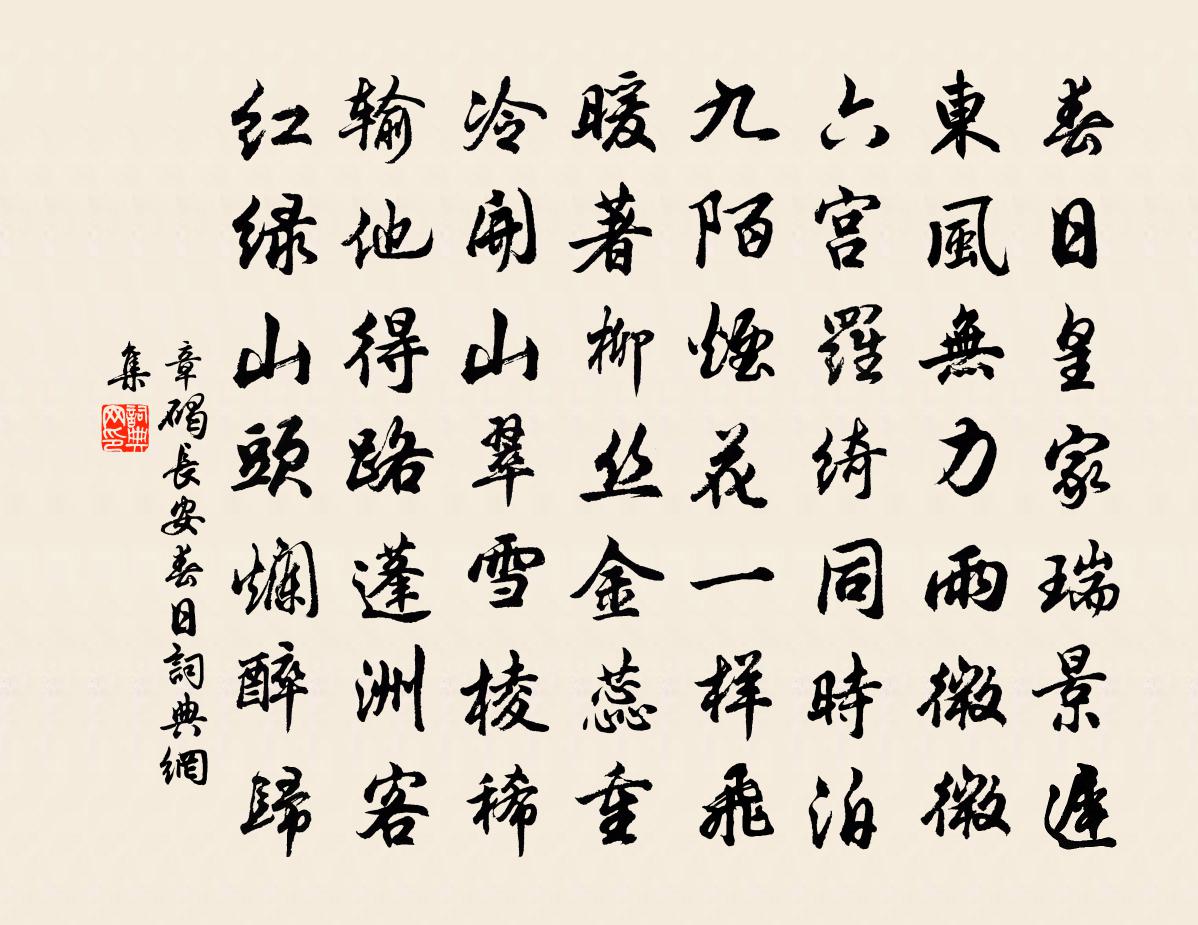 春日皇家瑞景遲
東風無力雨微微
六宮羅綺同時泊
九陌煙花一样飛
暖著柳丝金蕊重
冷開山翠雪棱稀
输他得路蓬洲客
红绿山頭爛醉歸
章碣長安春日詞典網
集
詞典网印